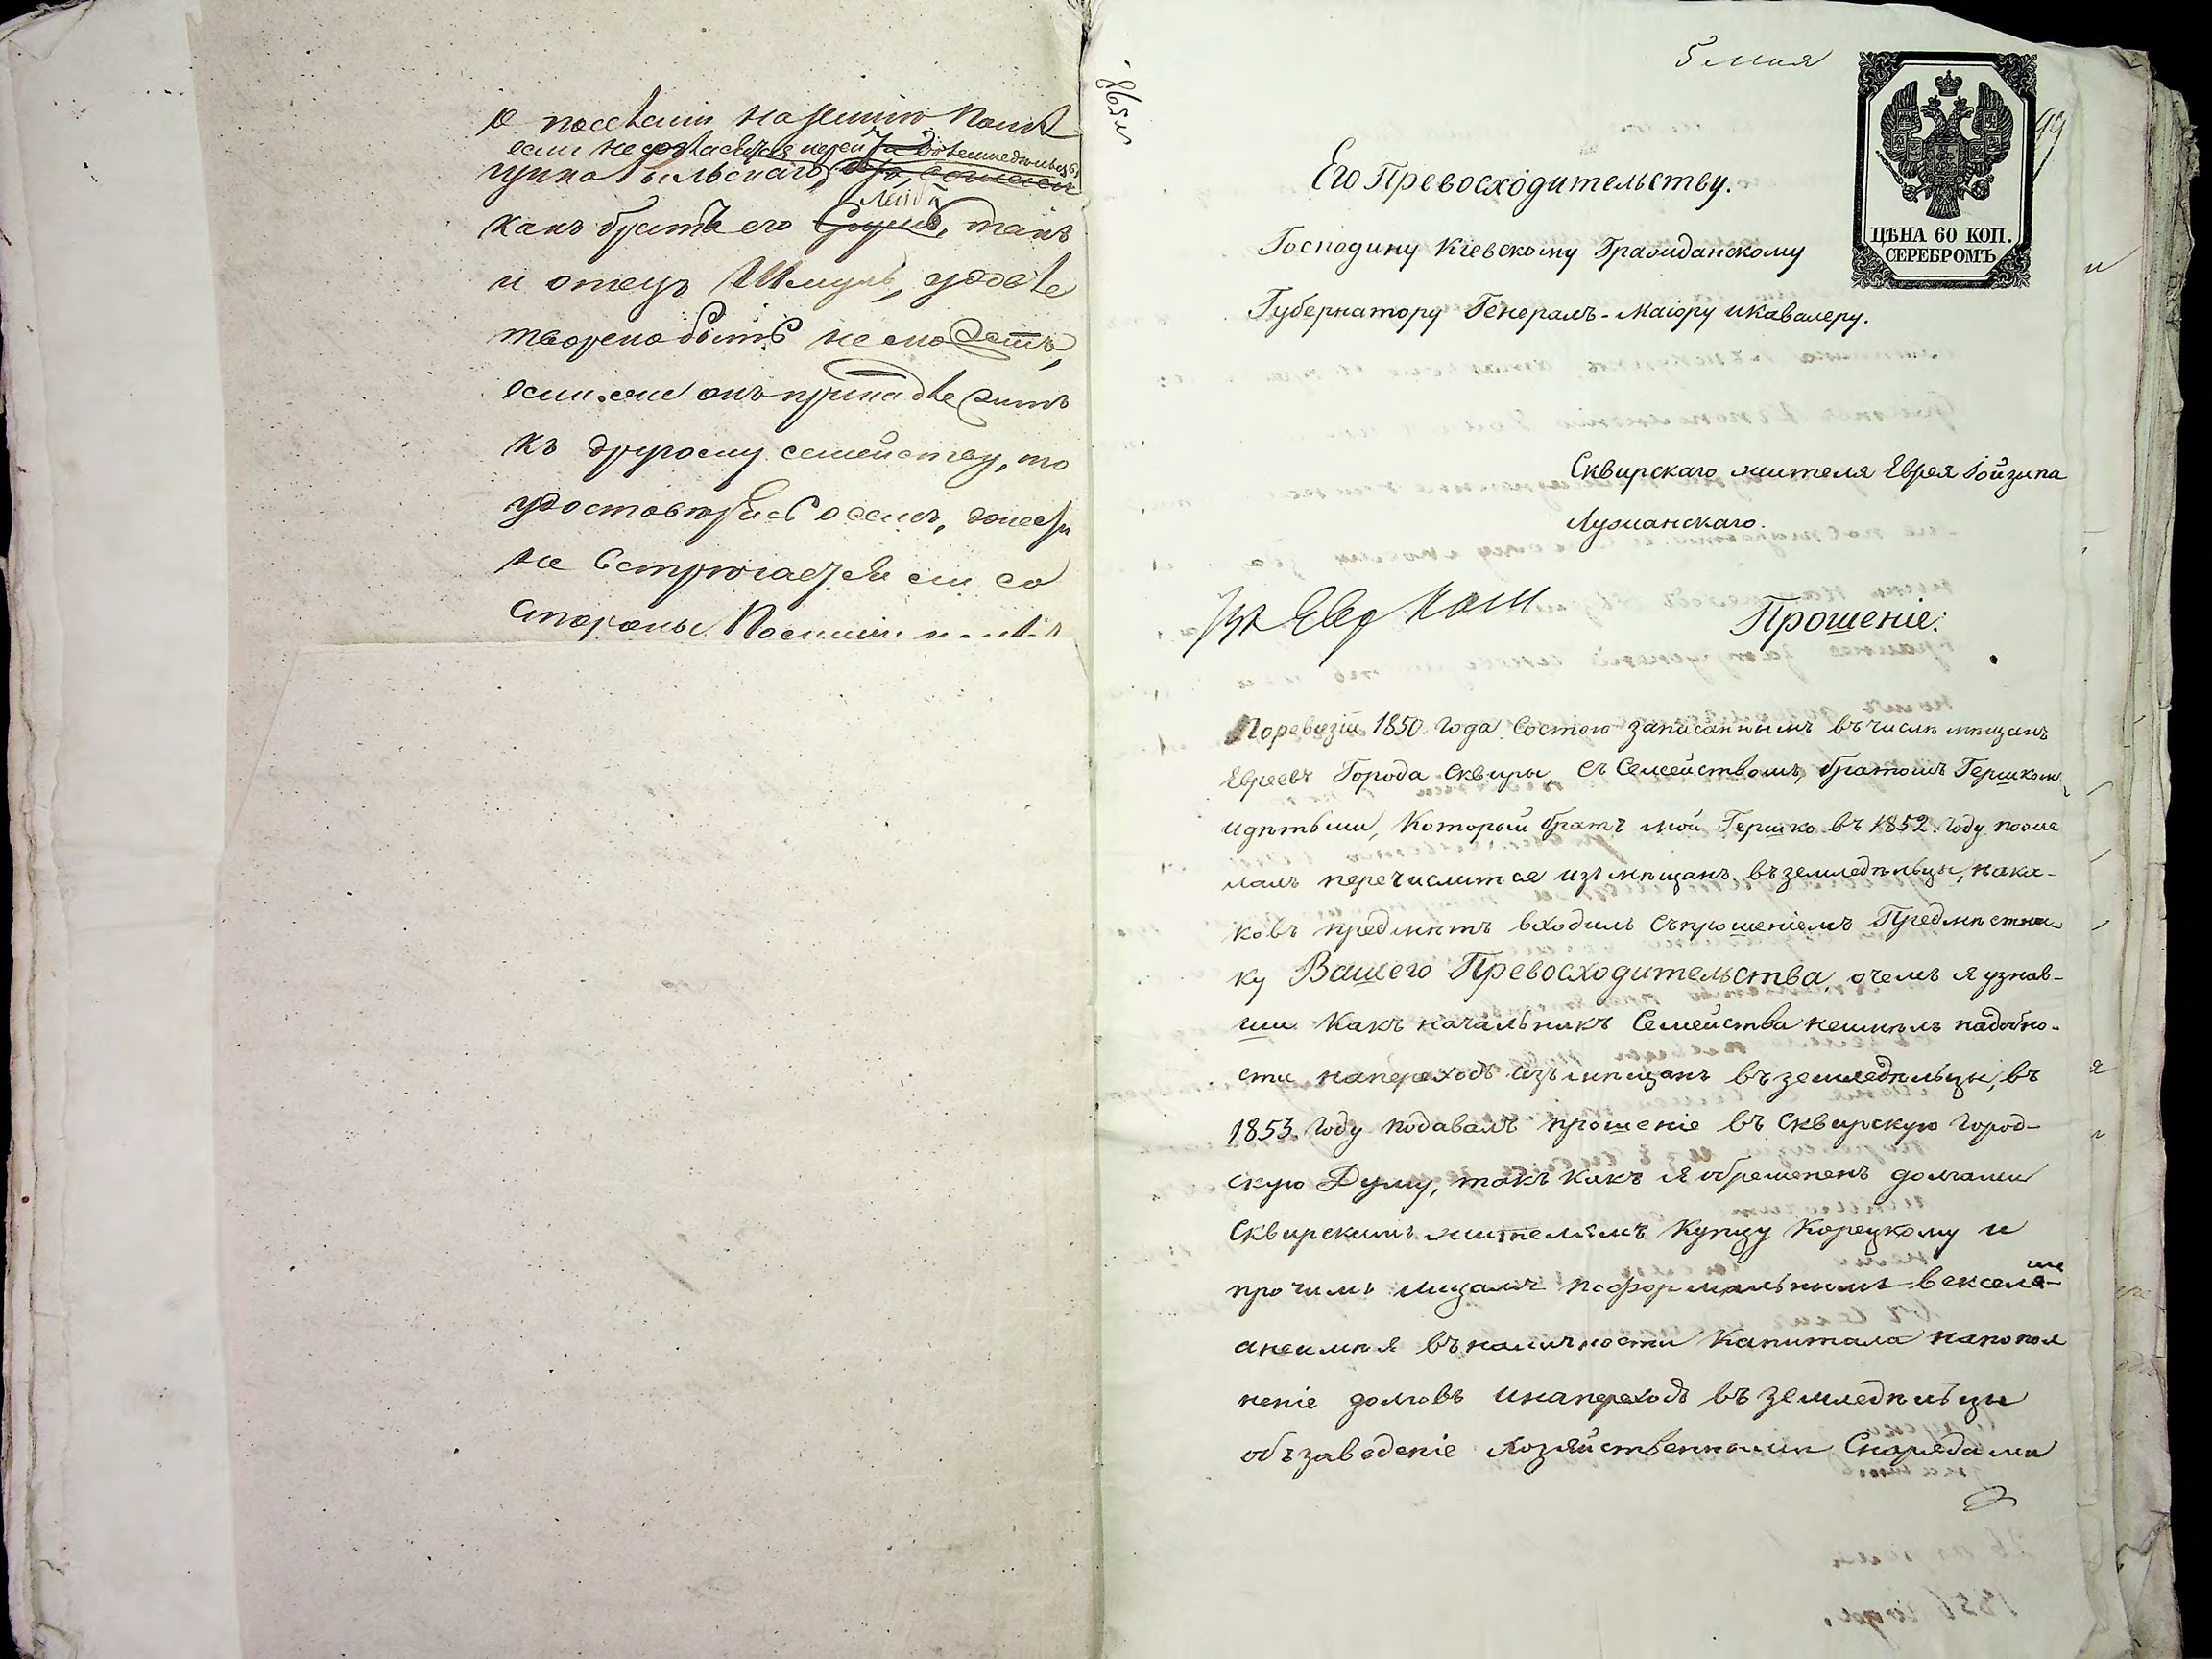 если не
какъ братъ его Лейба, такъ
и отецъ Шмуль, удовле
творено быть не можетъ,
если же онъ принадлежитъ
къ другому семейству, то
удостоверясь о семъ, донести
не встречается ли со
стороны
5 мая
99
ЦѢНА 60 КОП.
СЕРЕБРОМЪ
Его Превосходительству.
Господину Кіевскому Гражданскому
Губернатору Генералъ-Маіору икавалеру.
Сквирскаго жителя Еврея Іойзипа
Лузманскаго.
Прошеніе:
Поревизіи 1850. года состою записаннымъ въ числѣ мѣщанъ
Евреевъ Города Сквиры, съ Семействомъ, братомъ Гершком
идѣтьми, Который братъ мой Гершко въ 1852. году поже
лалъ перечислится изъ мѣщанъ въ земледѣльцы, нака-
ковъ предмѣтъ входилъ съпрошеніемъ Предмѣстни
ку Вашего Превосходительства, очемъ я узнав-
ши Какъ начальникъ Семейства неимѣлъ надобно-
сти напереходъ изъ мѣщанъ въ земледѣльцы, въ
1853. году подавалъ прошеніе въ Сквирскую Город-
скую Думу, такъ какъ я обремененъ долгами
Сквирскимъ жителямъ Купцу Корецкому и
прочимъ лицамъ поформальнымъ векселя-
ми
анеимѣя въ наличности Капитала напопол
неніе долговъ инапереходъ въ земледѣльцы
объзаведеніе хозяйственными Снарядами